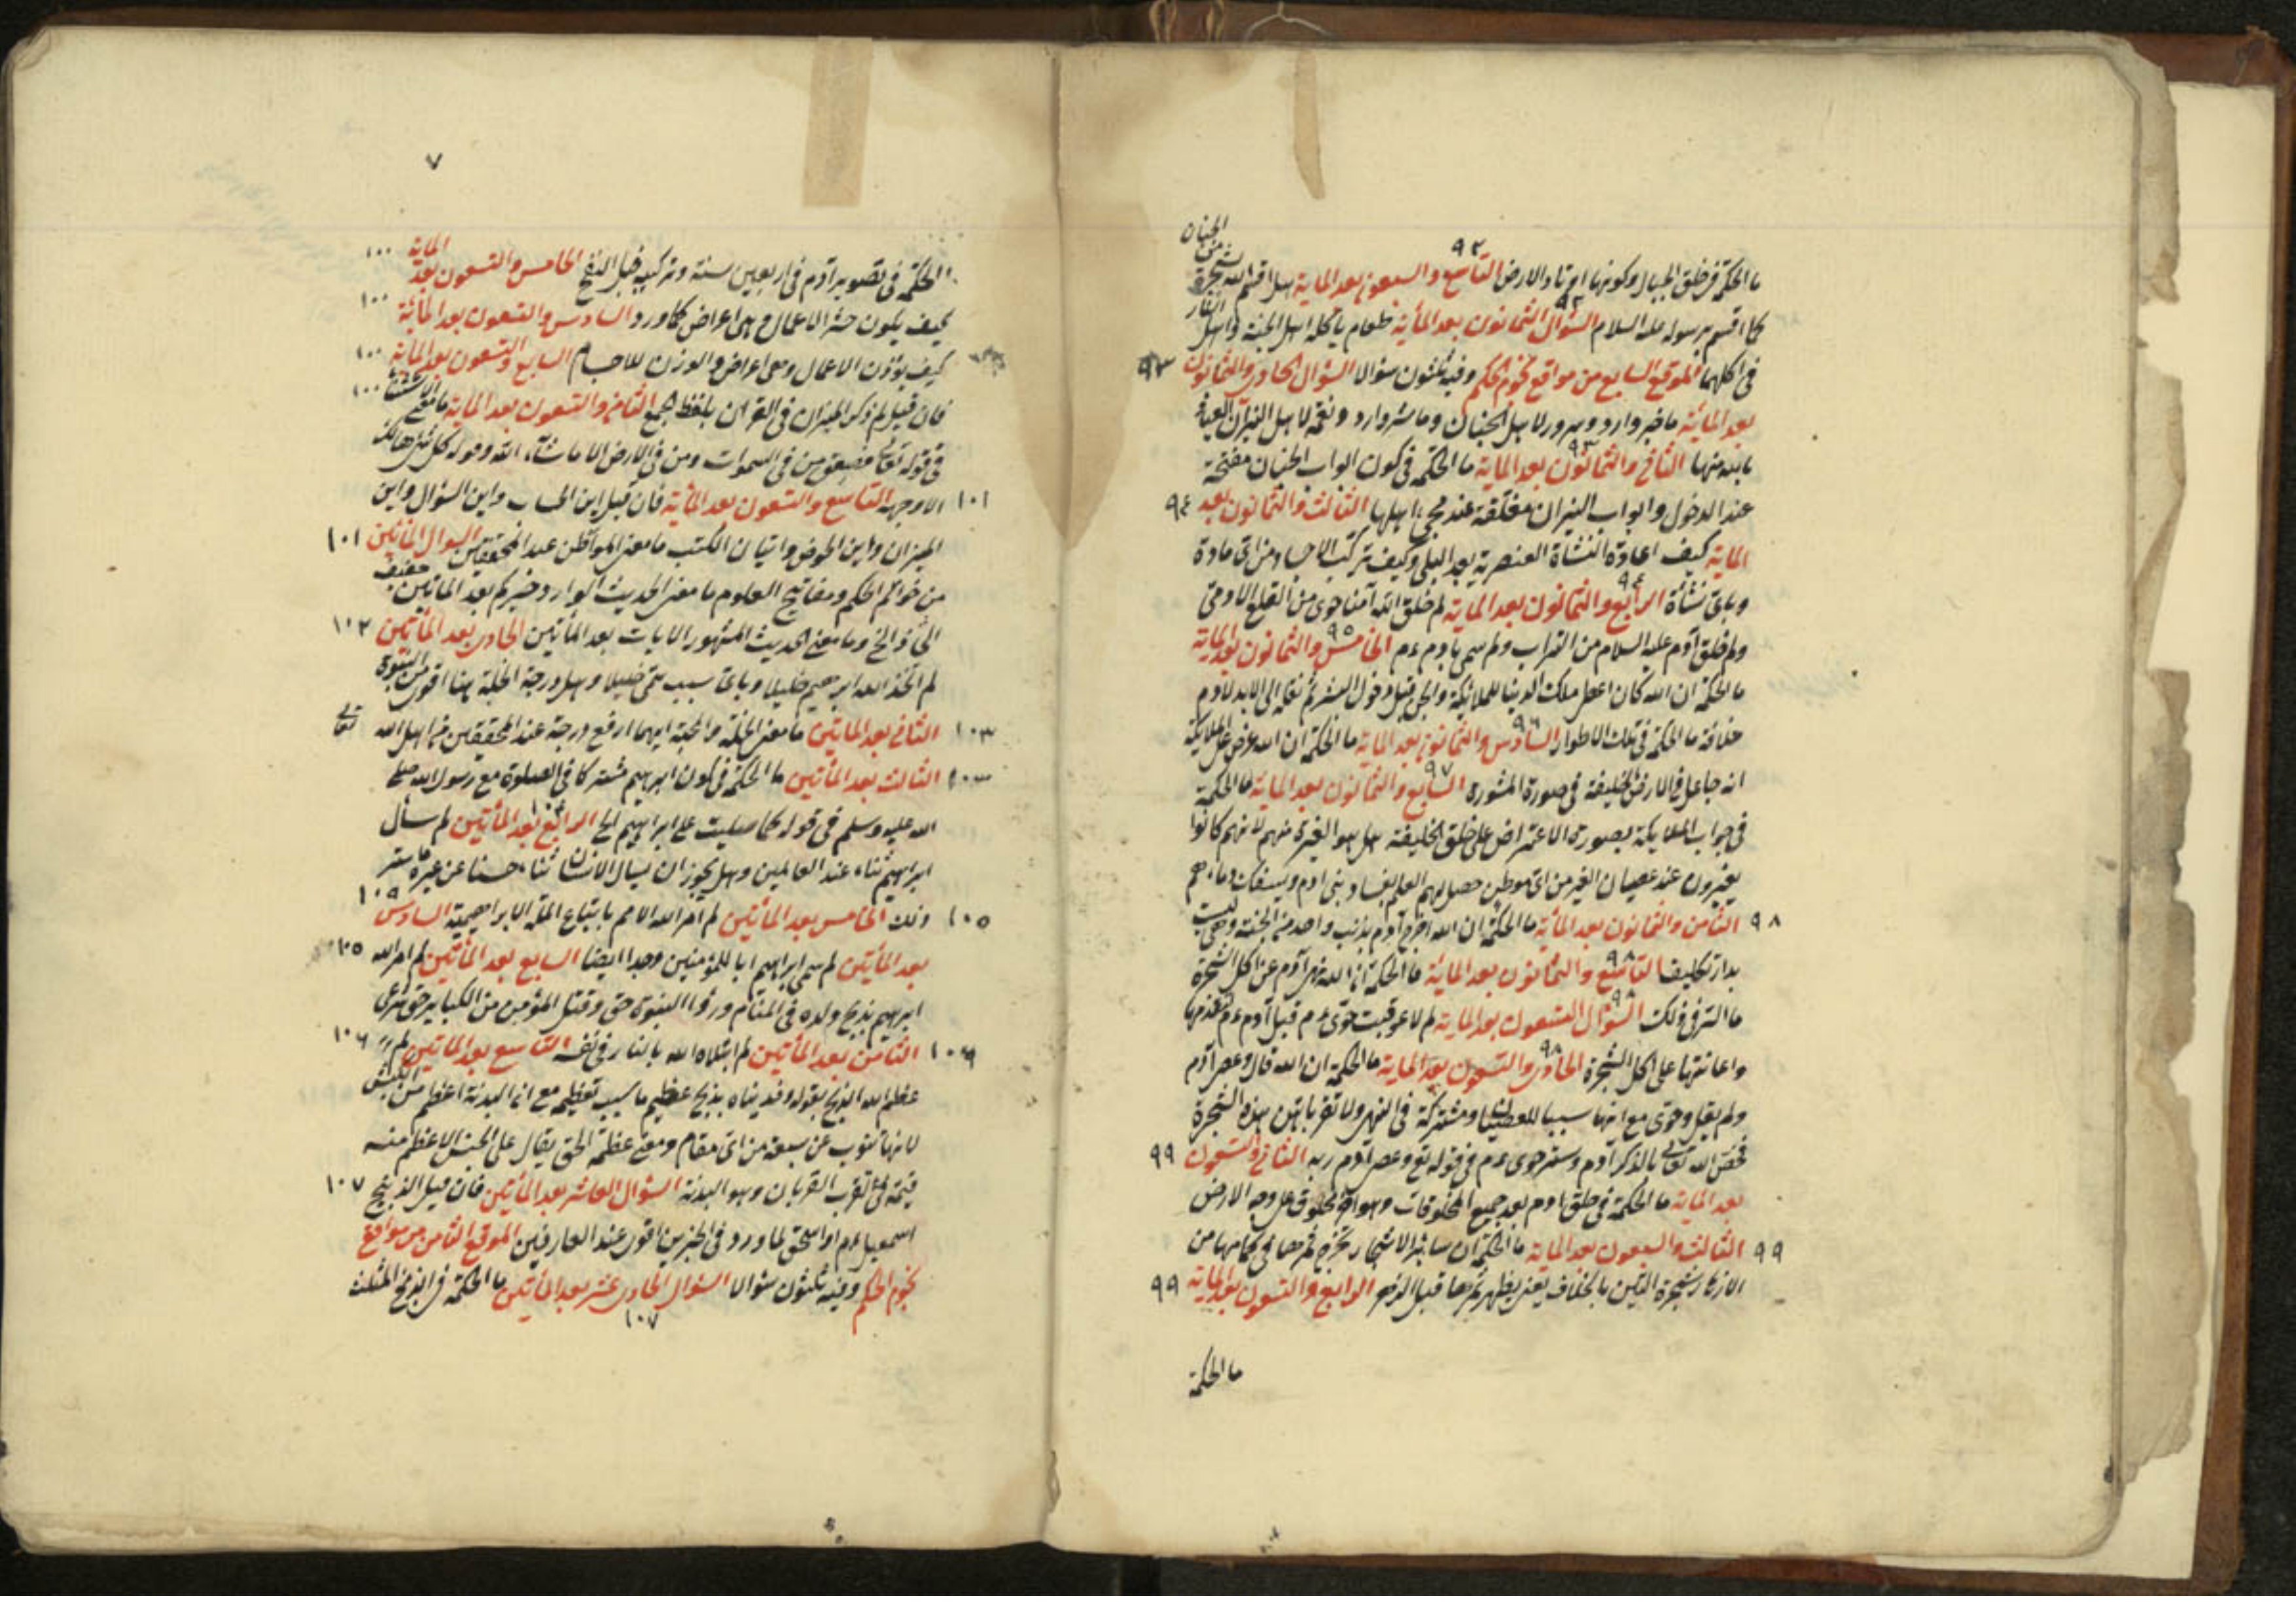 ما الحكمة فى خلق الجبال وكونها اوتاد الارض التاسع والسبعون بعد الماية هل اقسم الله بشجرة من الجنان
كما اقسم برسوله عليه السلام السؤال الثمانون بعد المأية طعام يأكله اهل الجنة واهل النار
فى اكلهما الموقع السابع من مواقع نجوم الحكم وفيه ثلثون سؤالا السؤال الحادى والثمانون ٩٣
بعد الماية ما خير وارد وسرور لاهل الجنان وما شر وارد ونقمة لاهل النيران العياذ
بالله منها الثانى والثمانون بعد الماية ما الحكمة فى كون ابواب الجنان مفتحة
عند الدخول وابواب النيران مغلقة عند مجئ اهلها الثالث والثمانون بعد ٩٤
الماية كيف اعادة النشأة العنصرية بعد البلى وكيف تركب الاجساد من اى مادة
وباى نشأة الرابع والثمانون بعد الماية لم خلق الله امنا حوى من الضلع الادمى
ولم خلق آدم عليه السلام من التراب ولم سمى بآدم ءم الخامس والثمانون بعد الماية
ما الحكمة ان الله كان اعطى ملك الدنيا للملائكة والجن قبل دخول البشر ثم نقله الى الابد لآدم
خلافة ما الحكمة فى تلك الاطوار السادس والثمانون بعد الماية ما الحكمة ان الله عرض على الملايكة
انه جاعل فى الارض خليفة فى صورة المشورة السابع والثمانون بعد الماية ما الحكمة
فى جواب الملايكة بصورة الاعتراض على خلق الخليفة هل هو الغيرة منهم لانهم كانوا
يغيرون عند عصيان الغير من اى موطن حصل لهم العلم بفساد بنى ادم وبسفك دماءهم
٩٨ الثامن والثمانون بعد المأية ما الحكمة ان الله اخرج آدم بذنب واحد من الجنة وهى ليست
بدار تكليف التاسع والثمانون بعد المائة ما الحكمة ان الله نهى آدم عن اكل الشجرة
ما السر فى ذلك السؤال التسعون بعد الماية لم لا عوقبت حوى ءم قبل آدم ءم
واعانتها على اكل الشجرة الحادى والتسعون بعد الماية ما الحكمة ان الله قال وعصى آدم
ولم يقل وحوى مع انها سببا للعصيان ومشتركة فى النهى ولا تقربا هذه الشجرة
فخص الله تعالى بالذكر آدم وستر حوى ءم فى قوله تع وعصى آدم ربه الثانى والتسعون ٩٩
بعد الماية ما الحكمة فى خلق ادم بعد جميع المخلوقات وهو آخر مخلوق على وجه الارض
٩٩ الثالث والتسعون بعد الماية ما الحكمة ان سائر الاشجار تخرج ثمرها فى كمامها من
الازهار وشجرة التين بالخلاف يعنى يظهر ثمرها قبل الزهر الرابع والتسعون بعد الماية ٩٩
ما الحكمة
٧
الحكمة فى تصوير آدم فى اربعين سنة وتركيبه قبل النفخ الخامس والتسعون بعد الماية ١٠٠
كيف يكون حشر الاعمال وهى اعراض كما ورد السادس والتسعون بعد المأئة ١٠٠
كيف يوزن الاعمال وهى اعراض والوزن للاجسام السابع والتسعون بعد الماية ١٠٠
فان قيل لم ذكر الميزان فى القران بلفظ الجمع الثامن والتسعون بعد الماية ما معنى الاستثناء ١٠٠
فى قوله تعالى فصعق من فى السموات ومن فى الارض الا ما شاء الله وقوله كل شئ هالك
١٠١ الا وجهه التاسع والتسعون بعد المأية فان قيل اين الحساب واين السؤال واين
الميزان واين الحوض واتيان الكتب ما معنى المواطن عند المحققين السوال المأتين ١٠١
من خواتم الحكم ومفاتيح العلوم ما معنى الحديث الوارد خيركم بعد الماتين خفيف
الحاذ الخ وما معنى الحديث المشهور الايات بعد المأتين الحادى بعد المأتين ١٠٢
لم اتخذ الله ابرهيم خليلا وباى سبب سمى خليلا وهل درجة الخلة هنا اقوى من النبوة
١٠٣ الثانى بعد الماتين ما معنى الخلة والمحبة ايهما ارفع درجة عند المحققين من اهل الله تعالى
١٠٣ الثالث بعد المأتين ما الحكمة فى كون ابرهيم مشتركا فى الصلوة مع رسول الله صلى
الله عليه وسلم فى قوله كما صليت على ابراهيم الخ الرابع بعد المأتين لم سأل
ابرهيم ثناء عند العالمين وهل يجوز ان يسال الانسان ثناء حسنا عن غيره ما ستر
١٠٥ ذلك الخامس بعد المأتين لم امر الله الامم باتباع الملة الابراهيمية السادس
بعد المأتين لم سمى ابراهيم ابا للمؤمنين وجدا ايضا السابع بعد المأتين لم امر الله ١٠٥
ابرهيم بذبح ولده فى المنام ورؤيا النبوة حق وقتل المؤمن من الكباير حق شرعى
١٠٦ الثامن بعد المأتين لم ابتلاه الله بالنار فى نفسه التاسع بعد الماتين لم ١٠٦
عظم الله الذبح بقوله وفديناه بذبح عظيم ما سبب تعظيمه مع ان البدنة اعظم من الكبش
لانها تنوب عن سبعة من اى مقام ومعنى عظمة الحق يقال على الجنس الاعظم منه
قيمة فى تقرب القربان وهو البدنة السؤال العاشر بعد المأتين فان قيل الذبيح ١٠٧
اسمعيل ءم او اسحق لما ورد فى الخبرين اقوى عند العارفين الموقع الثامن من مواقع
نجوم الحكم وفيه ثلثون سؤالا السؤال الحادى عشر بعد المأتين ما الحكمة فى المثلث
١٠٧